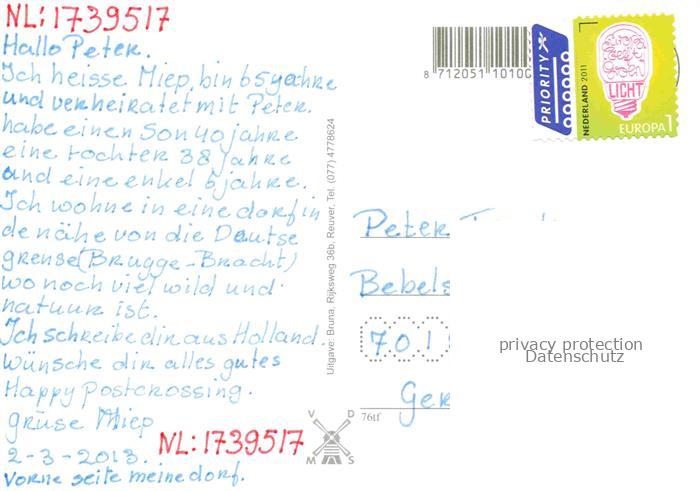 NL:1739517
Hallo Peter.
Ich heisse Miep, bin 65 yahre
und verheiratet mit Peter.
habe einen Son 40 jahre
eine tochter 38 jahre
and eine enkel 5 jahre.
Ich wohne in eine dorf in
de nähe von die Deutse
grense (Brugge-Bracht)
wo noch viel wild und
natuur ist.
Ich schreibe dir aus Holland.
wünsche dir alles gutes
Happy postcrossing.
grüse Miep
NL:1739517
2-3-2013.
Vorne seite meine dorf.
Uitgave: Bruna, Rijksweg 36b, Reuver, Tel. (077) 4778624
8 712051 10100
PRIORITY
NEDERLAND 2011
LICHT
EUROPA 1
Peter
Bebels
701
Ger
privacy protection
Datenschutz
V D
M S
76tf